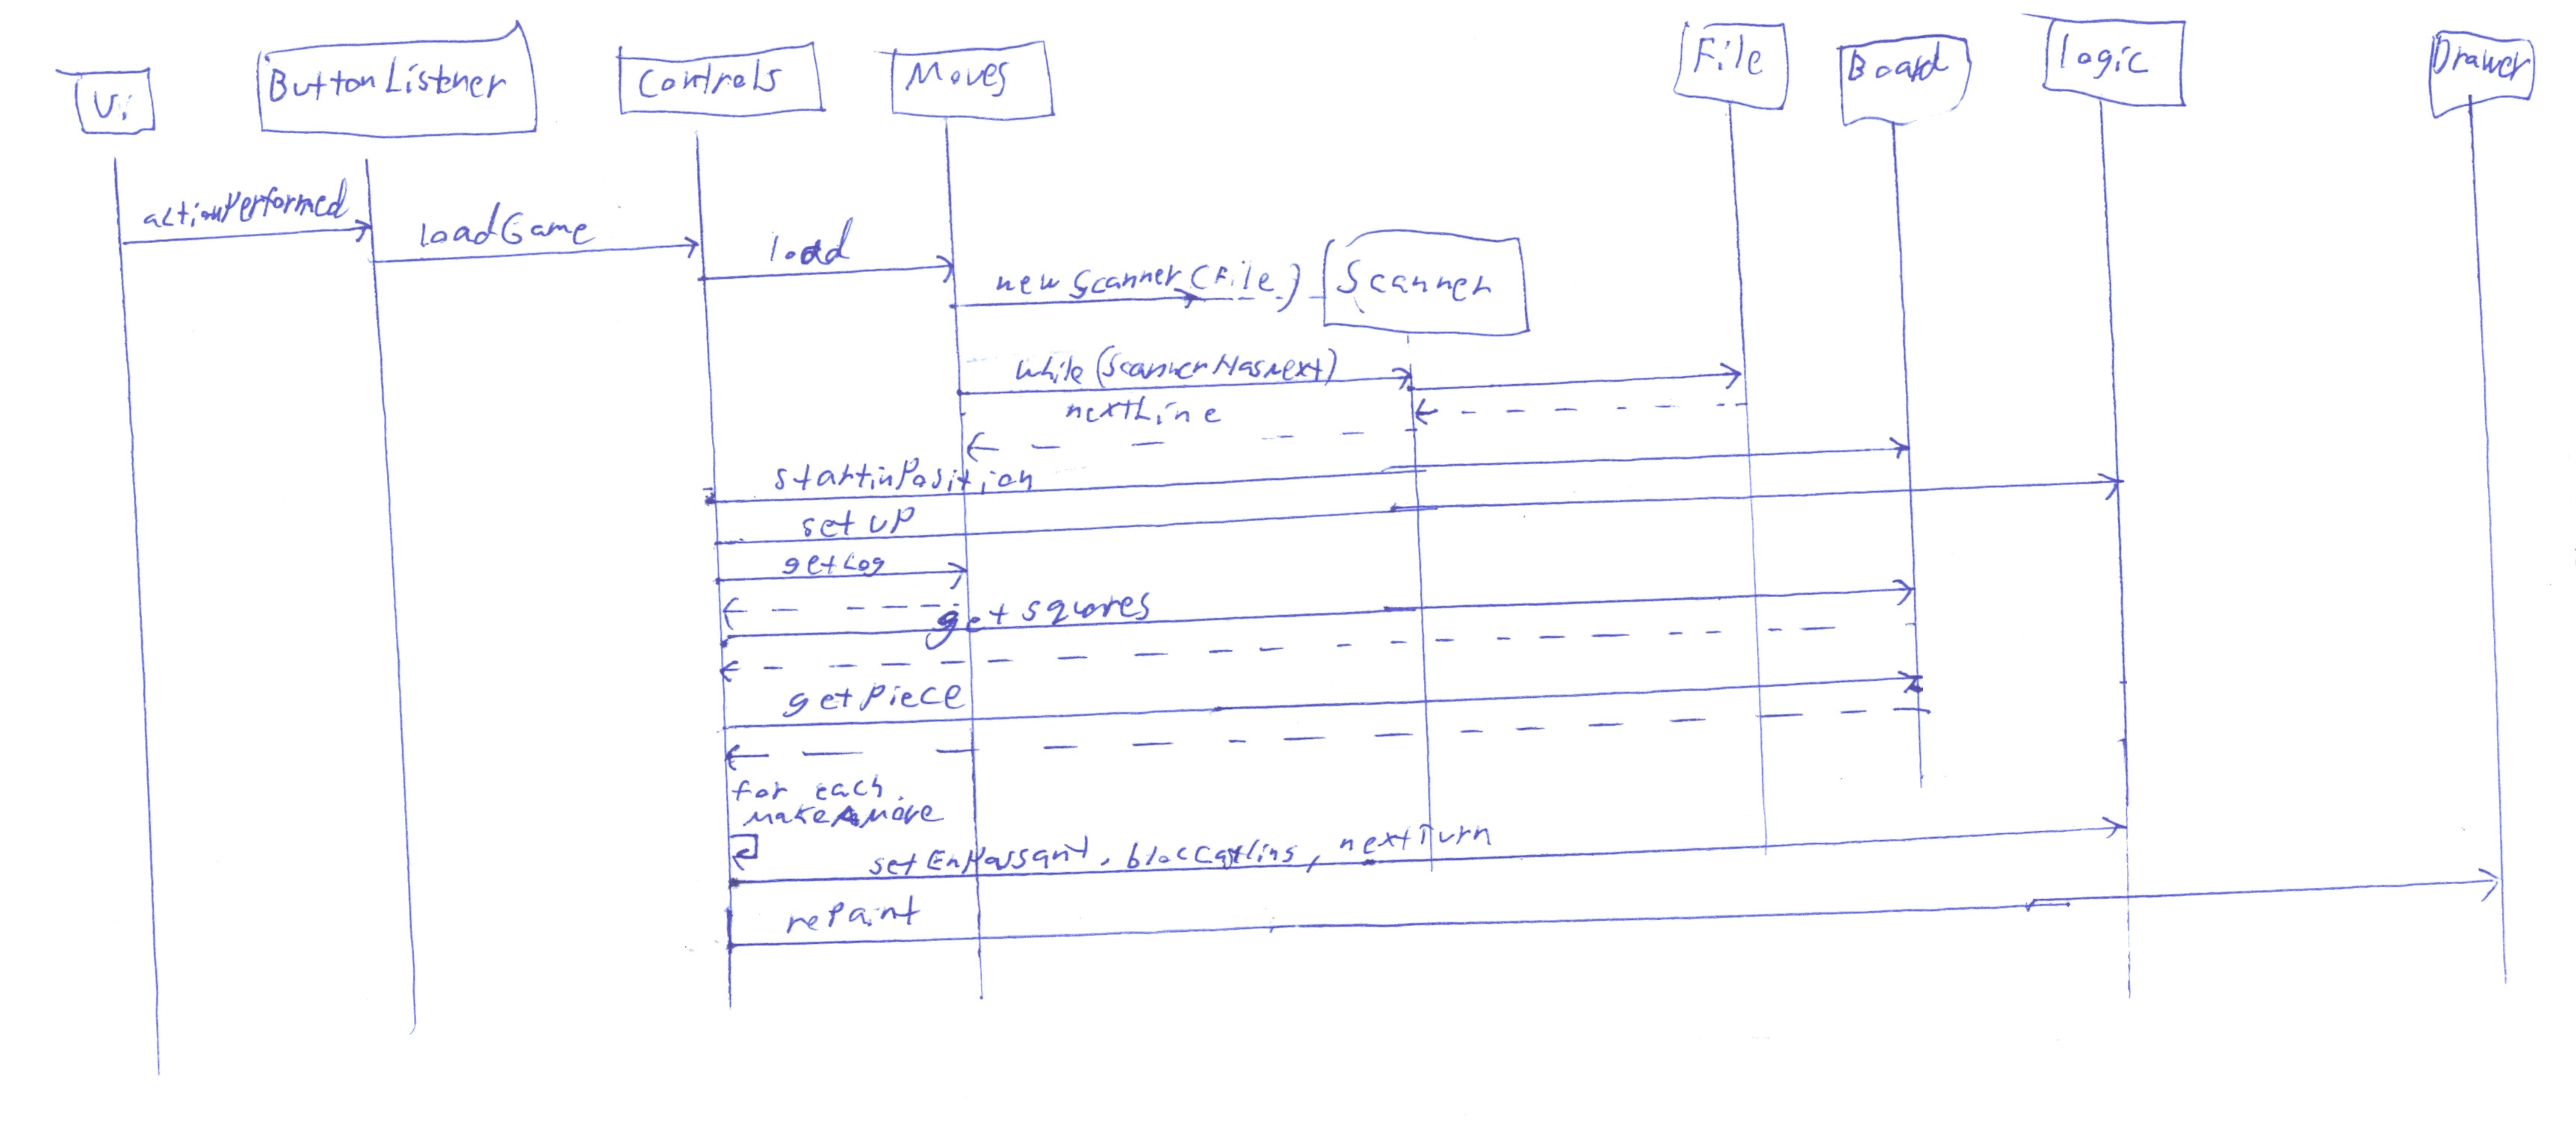 Ui
ButtonListener
Controls
Moves
File
Board
logic
Drawer
actionPerformed
loadGame
load
new Scanner (File)
Scanner
while (ScannerHasnext)
nextLine
startinPosition
set up
getLog
get squares
get piece
for each
makeAMove
setEnPassant, blocCastlins, nextTurn
rePaint